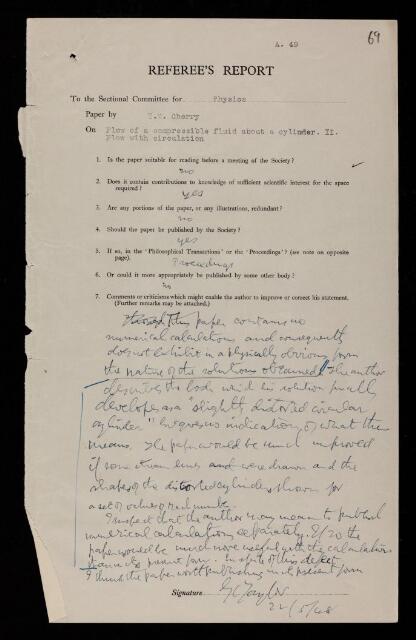 A. 49
69
REFEREE'S REPORT
To the Sectional Committee for Physics
Paper by T.M. Cherry
On Flow of a compressible fluid about a cylinder. II.
Flow with circulation
1. Is the paper suitable for reading before a meeting of the Society?
no
2. Does it contain contributions to knowledge of sufficient scientific interest for the space
required?
yes
3. Are any portions of the paper, or any illustrations, redundant?
no
4. Should the paper be published by the Society?
yes
5. If so, in the 'Philosophical Transactions' or the 'Proceedings'? (see note on opposite
page).
Proceedings
6. Or could it more appropriately be published by some other body?
no
7. Comments or criticisms which might enable the author to improve or correct his statement.
(Further remarks may be attached.)
This paper contains no
numerical calculations and consequently
does not exhibit in a physically obvious form
the nature of the solutions obtained. The author
describes the body which his solution finally
develops as a "slightly distorted circular
cylinder" but gives no indication of what this
means. The paper would be much improved
if some stream lines and were drawn and the
shapes of the distorted cylinders shown for
a set of values of
I suspect that the author may mean to publish
numerical calculations separately. If so the
paper would be much more useful with the calculations
than in its present form. In spite of this defect
I think the paper worth publishing in its present form
Signature G.I. Taylor
22/5/48